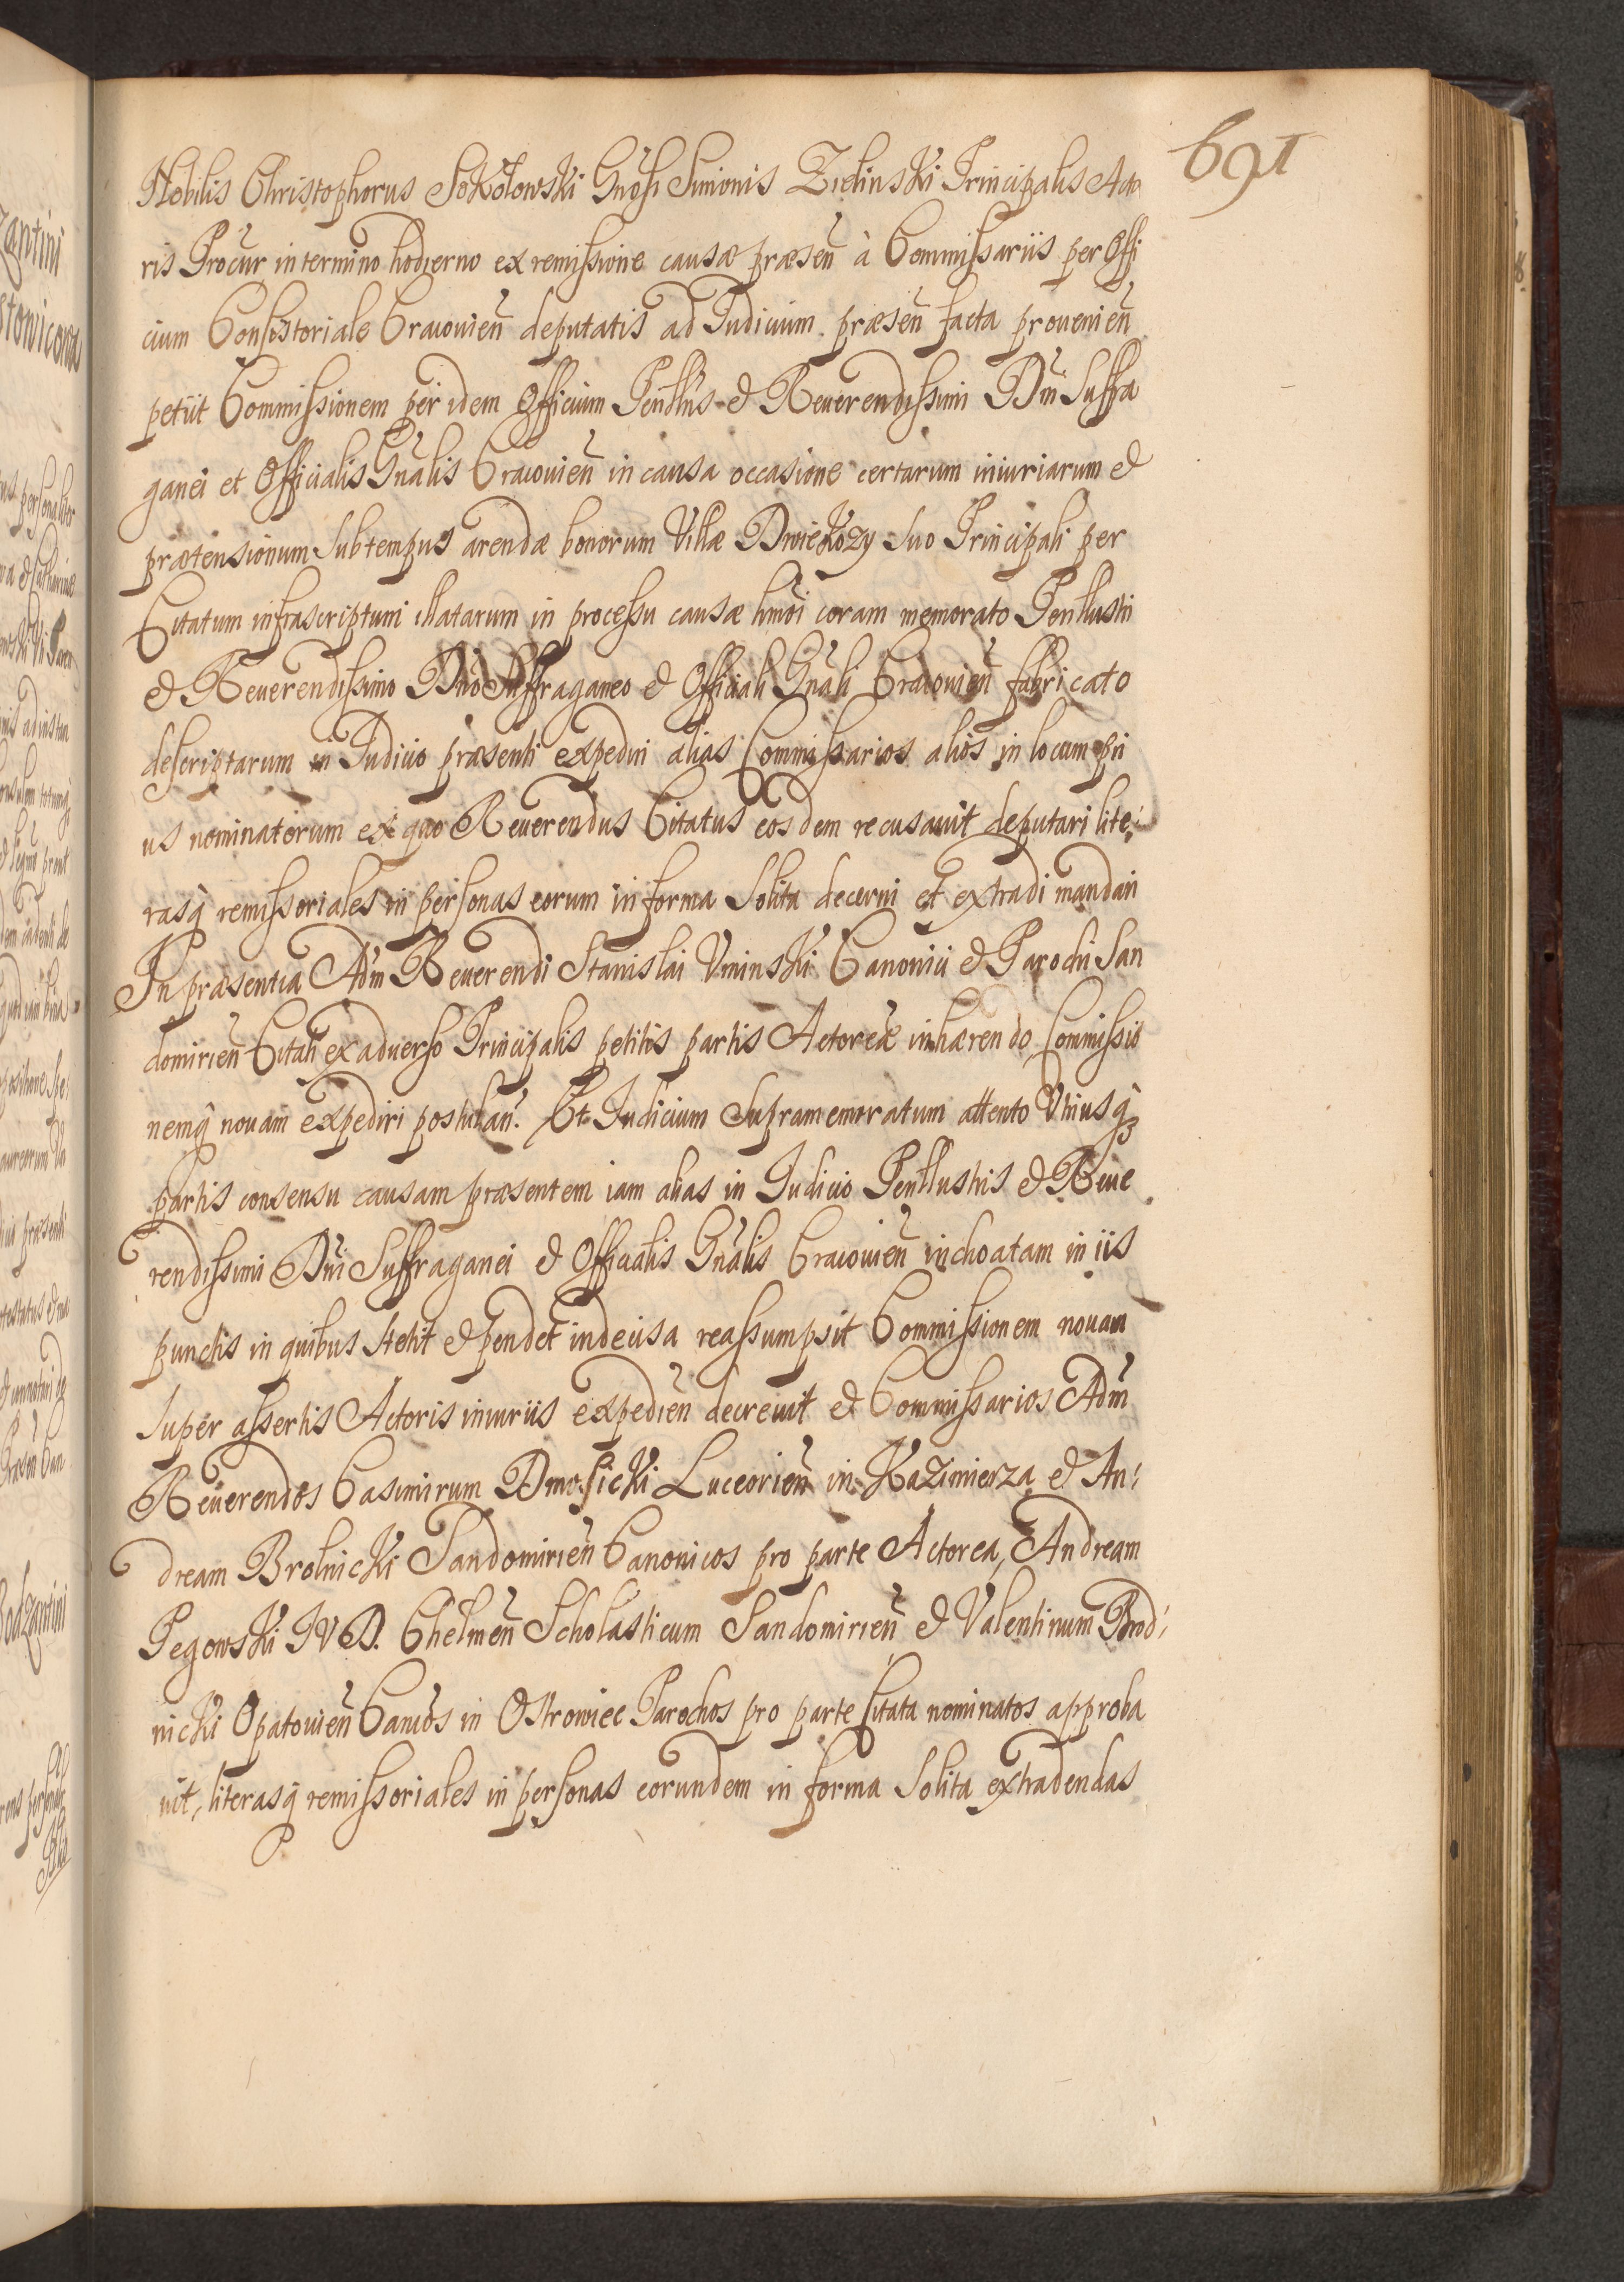 691
Nobilis Christophorus Sokołowski Gnosi Simionis Zielinski Principalis Acto
ris Procur in termino hodierno ex remissione causæ præsen à Commissariis per Offi
cium Consistoriale Cracouien deputatis ad Iudicium præsen facta prouenien
petiit Commissionem per idem Officium Perillris & Reuerendissimi Dni Suffra
ganei et Officialis Gnalis Cracouien in causa occasione certarum iniuriarum &
prætensionum sub tempus arendæ bonorum Villæ Dwiekozy suo Principali per
Citatum infrascriptum illatarum in processu causæ hmoi coram memorato Perillustri
& Reuerendissimo Dno Suffraganeo & Officiali Gnali Cracouien fabricato
descriptarum in Iudicio præsenti expediri alias Commissarios alios in locum pri
us nominatorum ex quo Reuerendus Citatus eosdem recusauit deputari lite:
rasq remissoriales in personas eorum in forma solita decerni et extradi mandari
In præsentia Adm Reuerendi Stanislai Vminski Canonici & Parochi San
domirien Citati ex aduerso Principalis petitis partis Actoreæ inhærendo Commissio
nemq nouam expediri postulan. Et Iudicium supramemoratum attento Vtriusq
partis consensu causam præsentem iam alias in Iudicio Perillustris & Reue
rendissimi Dni Suffraganei & Officialis Gnalis Cracouien inchoatam in iis
punctis in quibus stetit & pendet indecisa reassumpsit Commissionem nouam
super assertis Actoris iniuriis expedien decreuit & Commissarios Adm
Reuerendos Casimirum Dmosicki Luceorien in Kazimierza & An:
dream Brolnicki Sandomirien Canonicos pro parte Actorea, Andream
Pegowski IVD. Chelmen Scholasticum Sandomirien & Valentinum Brod:
nicki Opatouien Canicos in Ostrowiec Parochos pro parte Citata nominatos approba
uit, literasq remissoriales in personas eorundem in forma solita extradendas